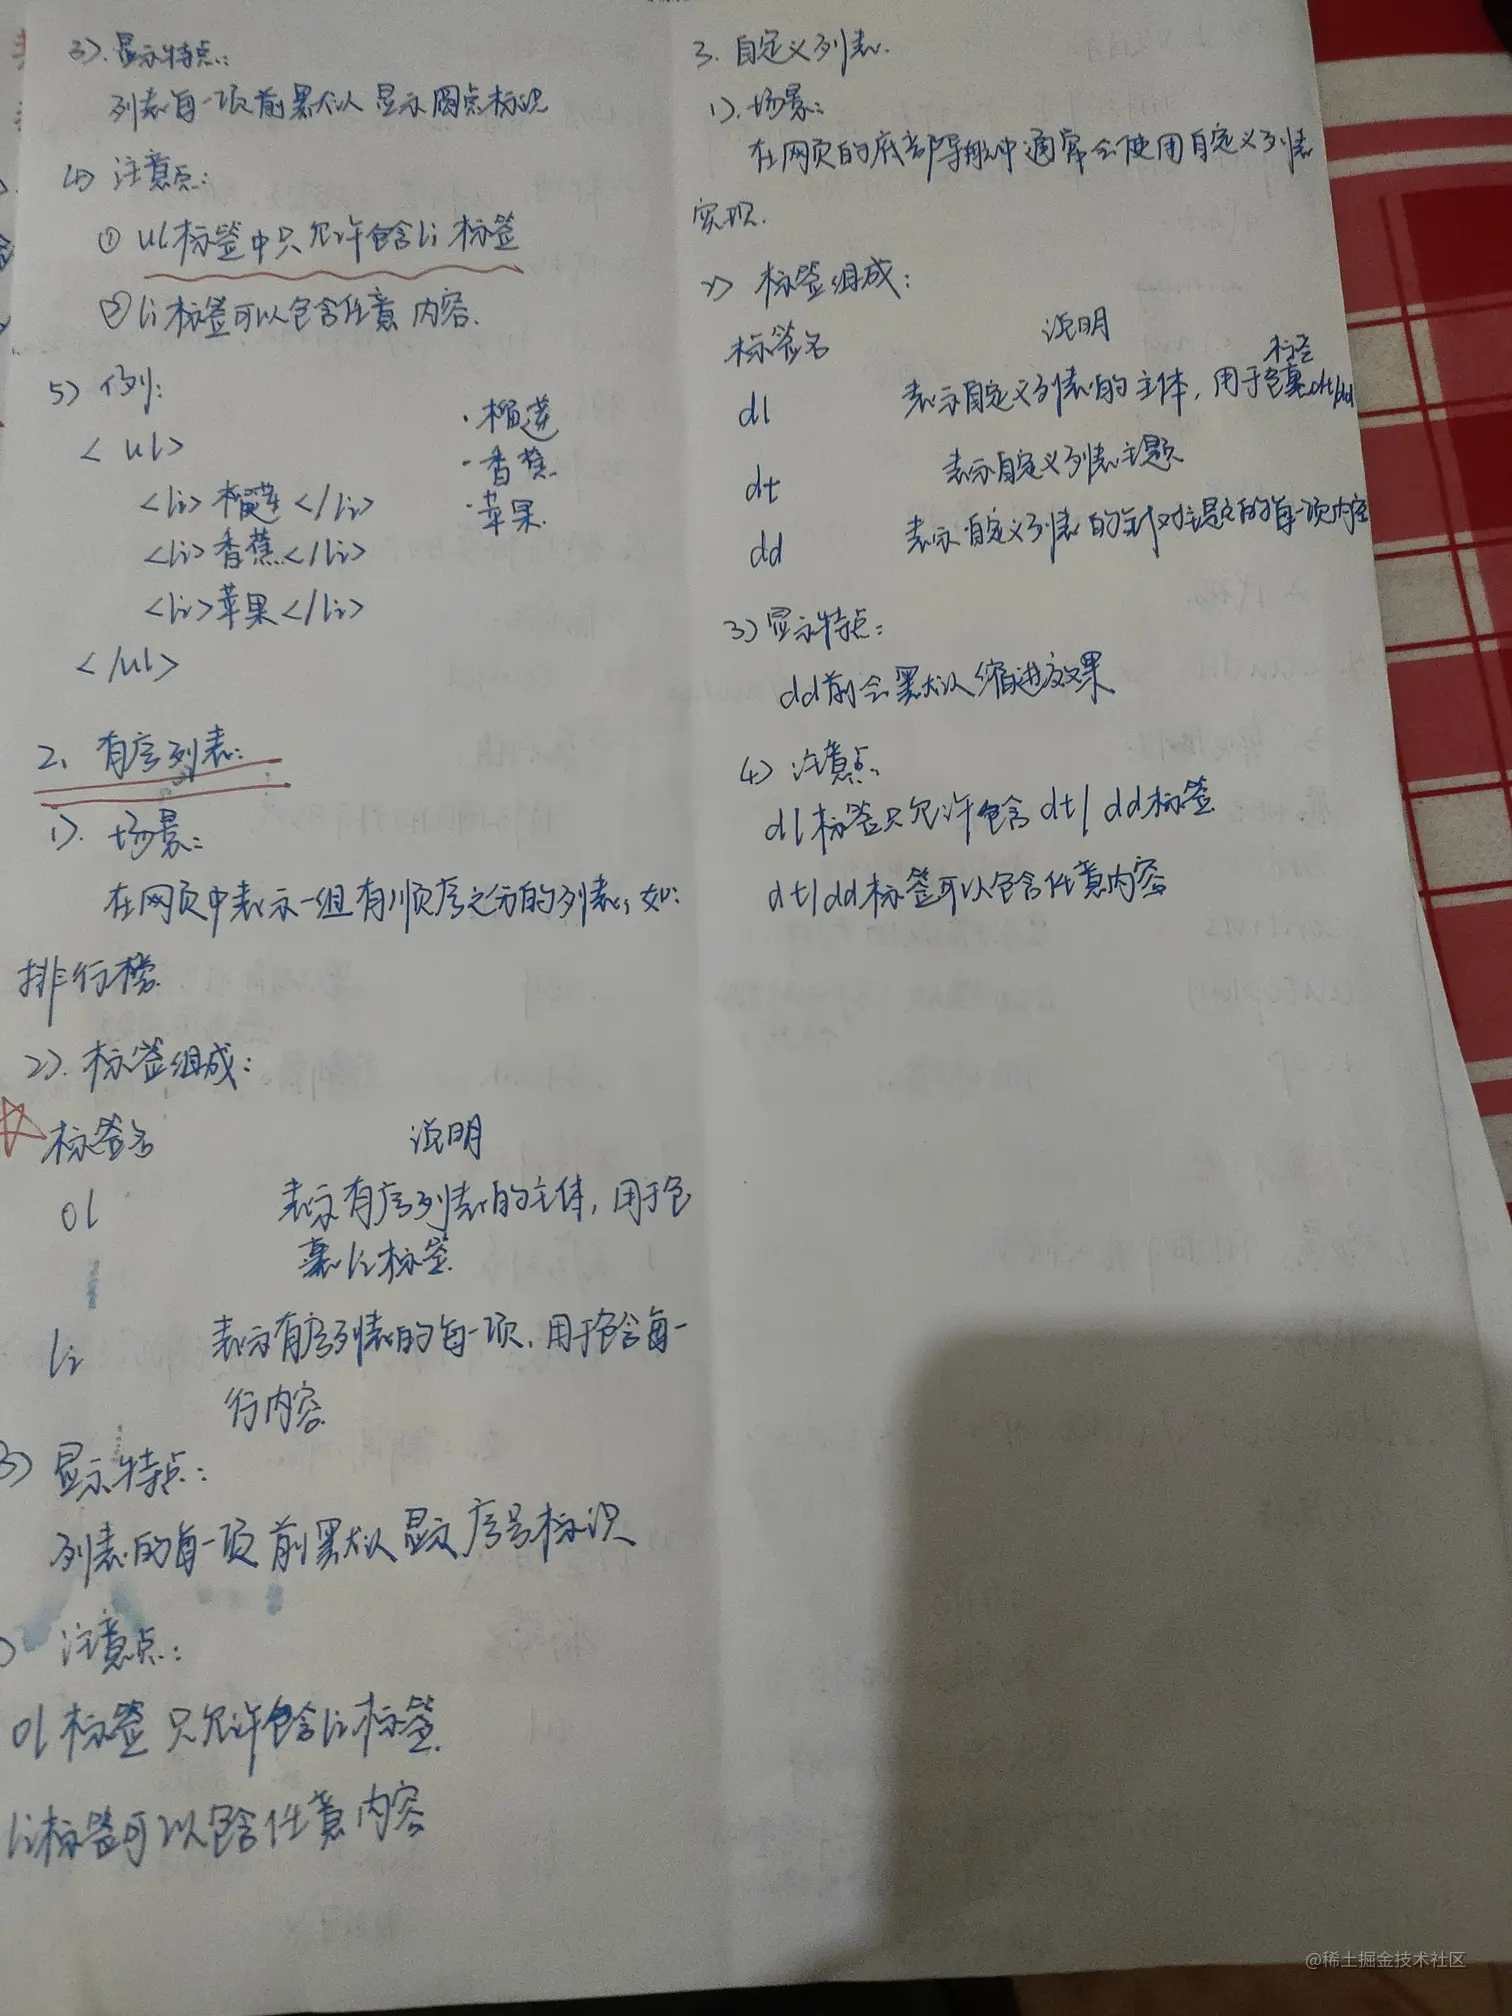 3). 显示特点:
列表每一项前默认显示圆点标识
4) 注意点:
① ul标签中只允许包含li标签
② li标签可以包含任意内容.
5) 例:
<ul>
<li>榴莲</li>
<li>香蕉</li>
<li>苹果</li>
</ul>
·榴莲
·香蕉
·苹果
2、有序列表:
1). 场景:
在网页中表示一组有顺序之分的列表, 如:
排行榜.
2). 标签组成:
标签名 说明
ol 表示有序列表的主体, 用于包
裹li标签
li 表示有序列表的每一项, 用于包含每一
行内容
3) 显示特点:
列表的每一项前默认显示序号标识
) 注意点:
ol标签只允许包含li标签.
li标签可以包含任意内容
3. 自定义列表.
1). 场景:
在网页的底部导航中通常会使用自定义列表
实现.
2) 标签组成:
标签名 说明
dl 表示自定义列表的主体, 用于包裹dt/dd标签
dt 表示自定义列表主题
dd 表示自定义列表的针对主题的每一项内容
3) 显示特点:
dd前会默认缩进效果
4) 注意点:
dl标签只允许包含dt/dd标签
dt/dd标签可以包含任意内容
@稀土掘金技术社区